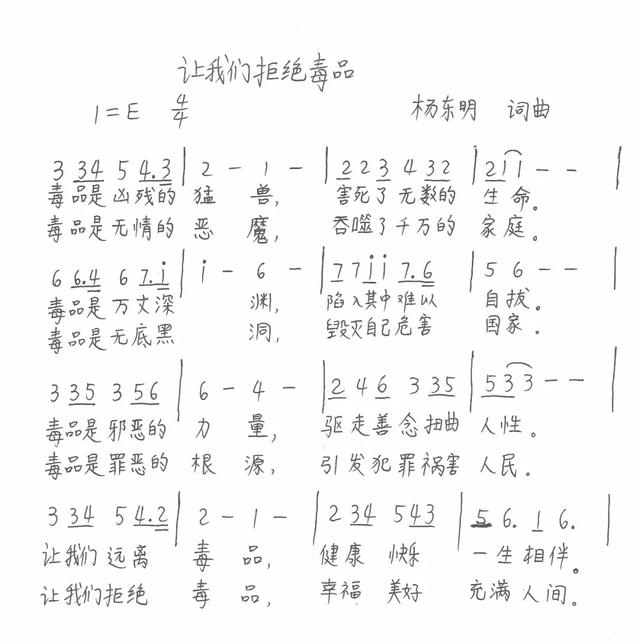 让我们拒绝毒品
1=E 4/4 杨东明 词曲
3 34 5 4.3 | 2 - 1 - | 223 4 32 | 211 - - |
毒品是凶残的猛兽， 害死了无数的生命。
毒品是无情的恶魔， 吞噬了千万的家庭。
6 6.4 6 7.i | i - 6 - | 77ii 7.6 | 5 6 - - |
毒品是万丈深渊， 陷入其中难以自拔。
毒品是无底黑洞， 毁灭自己危害国家．
3 35 3 56 | 6 - 4 - | 2 4 6 3 35 | 533 - - |
毒品是邪恶的力量， 驱走善念扭曲人性。
毒品是罪恶的根源， 引发犯罪祸害人民。
3 34 5 4.2 | 2 - 1 - | 2 34 543 | 5 6. 1 6. |
让我们远离毒品， 健康快乐一生相伴。
让我们拒绝毒品， 幸福美好充满人间。